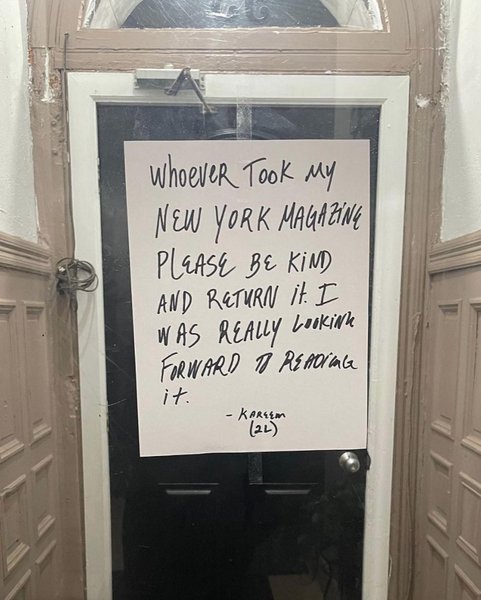 Whoever Took My
NEW YORK MAGAZINE
PLEASE BE KIND
AND RETURN it. I
WAS REALLY LOOKING
FORWARD TO READING
it.
- KAREEM
(2L)